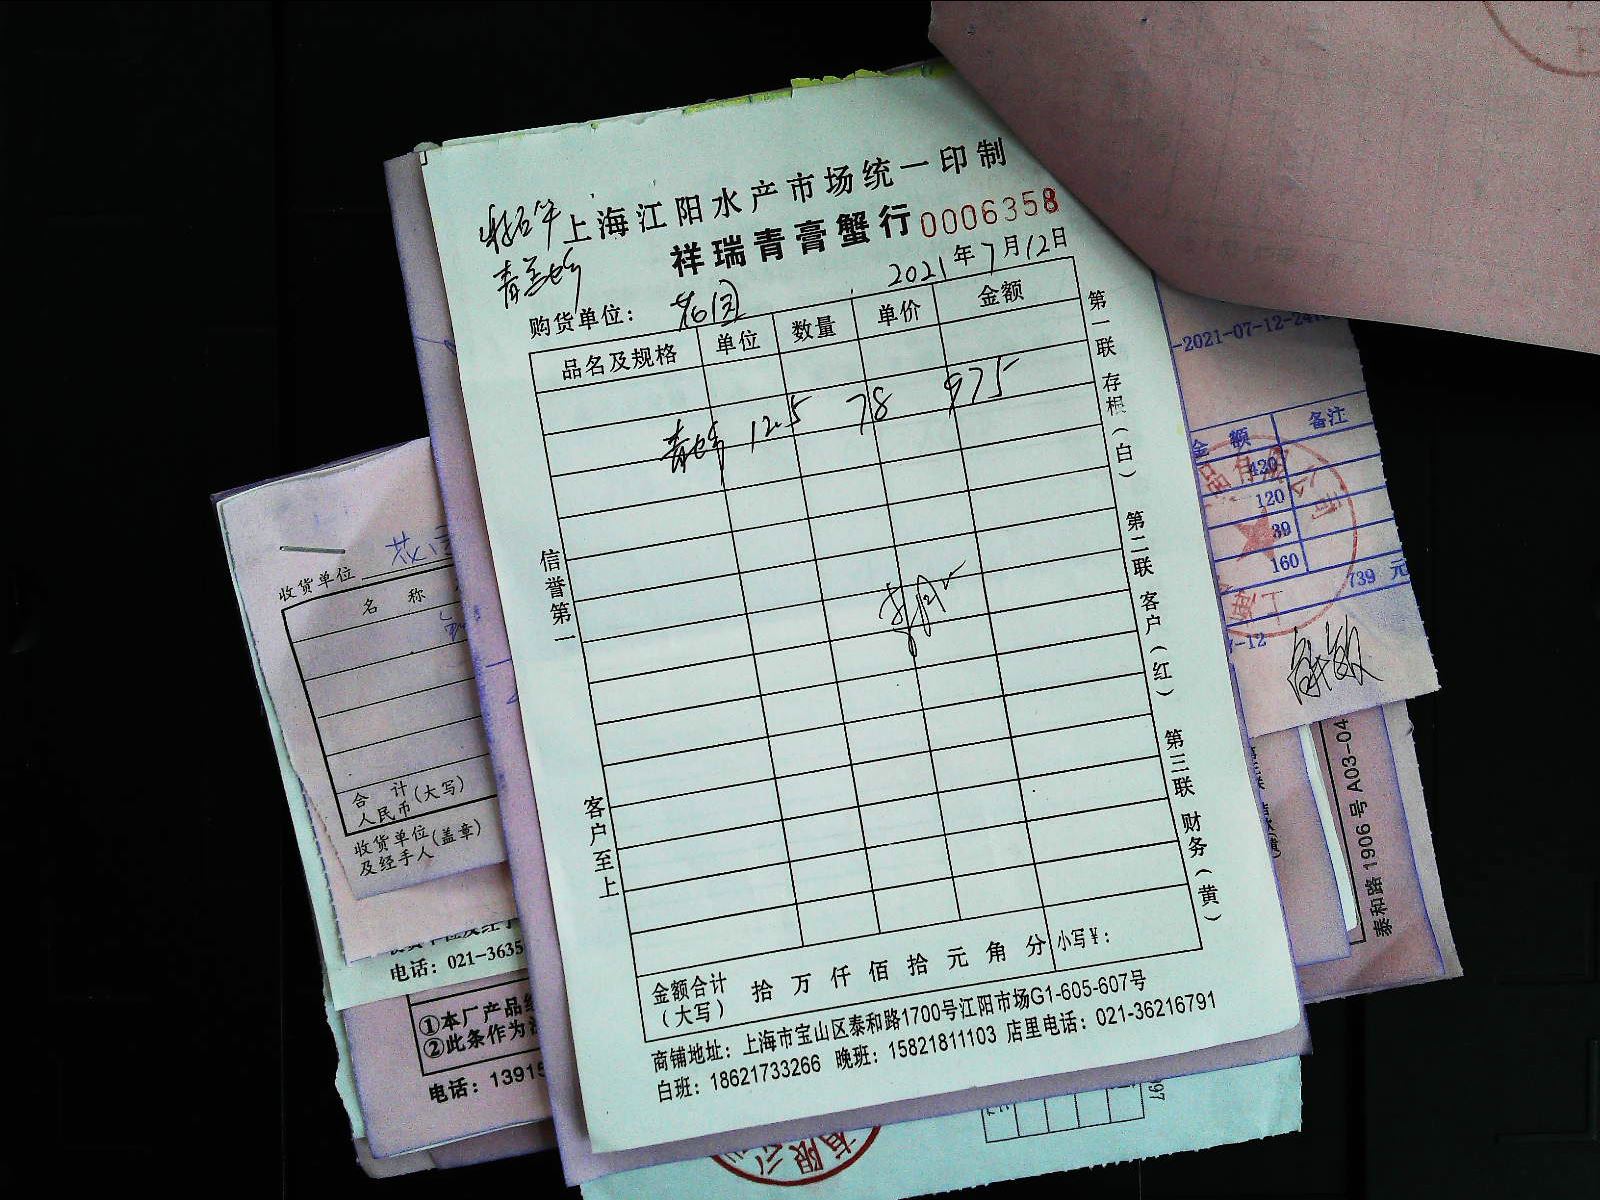 上海江阳水产市场统一印制
祥瑞青膏蟹行 0006358
2021年7月12日
购货单位： 花园
品名及规格 单位 数量 单价 金额
12.5 78 975
信誉第一
客户至上
第一联 存根（白） 第二联 客户（红） 第三联 财务（黄）
金额合计（大写） 拾 万 仟 佰 拾 元 角 分 小写￥：
商铺地址：上海市宝山区泰和路1700号江阳市场G1-605-607号
白班：18621733266 晚班：15821811103 店里电话：021-36216791
收货单位
名 称
合 计
人民币(大写)
收货单位(盖章)
及经手人
电话：021-3635
①本厂产品
②此条作为
电话：13915
-2021-07-12-24
金 额 备注
420
120
39
160
739 元
-12
泰和路1906号A03-04
有限公